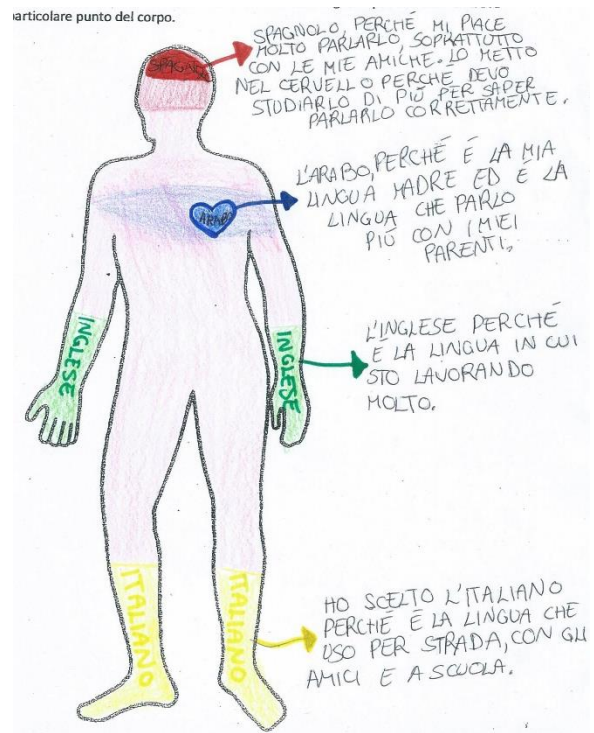 particolare punto del corpo.
SPAGNOLO, PERCHÉ MI PIACE
MOLTO PARLARLO, SOPRATTUTTO
CON LE MIE AMICHE. LO METTO
NEL CERVELLO PERCHE DEVO
STUDIARLO DI PIÙ PER SAPER
PARLARLO CORRETTAMENTE.
SPAGNOLO
L'ARABO, PERCHÉ È LA MIA
LINGUA MADRE ED È LA
LINGUA CHE PARLO
PIÙ CON I MIEI
PARENTI.
ARABO
INGLESE
INGLESE
L'INGLESE PERCHÉ
È LA LINGUA IN CUI
STO LAVORANDO
MOLTO.
ITALIANO
ITALIANO
HO SCELTO L'ITALIANO
PERCHÉ È LA LINGUA CHE
USO PER STRADA, CON GLI
AMICI E A SCUOLA.